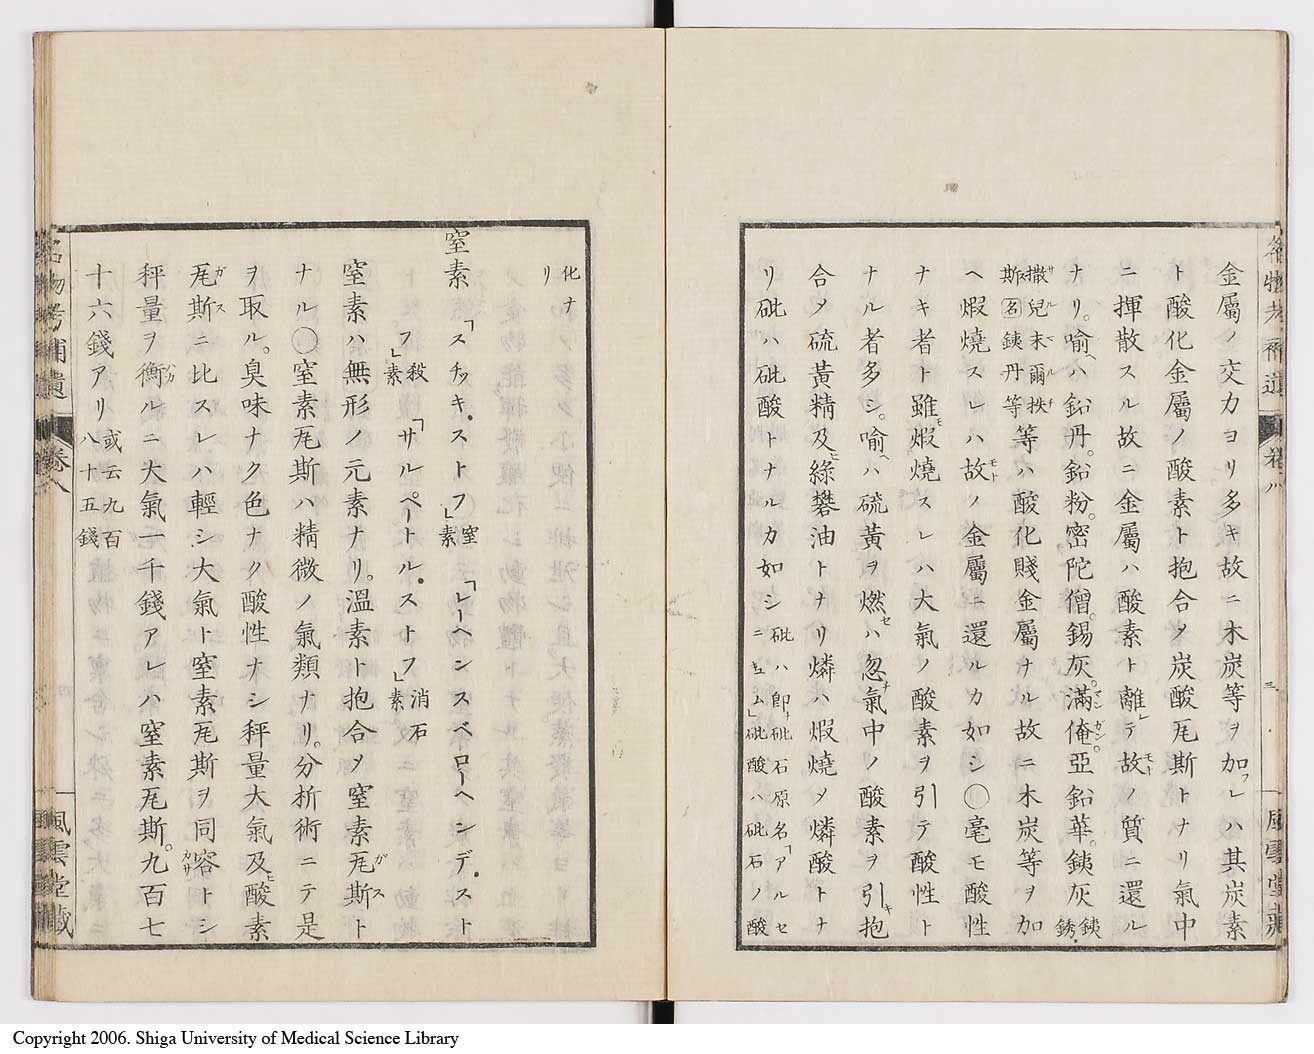 金屬ノ交カヨリ多キ故ニ木炭等ヲ加フレハ其炭素
ト酸化金屬ノ酸素ト抱合メ炭酸瓦斯トナリ氣中
ニ揮散スル故ニ金屬ハ酸素ト離レテ故ノ質ニ還ル
ナリ。喩ヘハ鉛丹。鉛粉。密陀僧。錫灰。滿俺。亞鉛華。銕灰 銕銹
撒兒末爾抶斯 名 銕丹等 等ハ酸化賤金屬ナル故ニ木炭等ヲ加
ヘ煆燒スレハ故ノ金屬ニ還ルカ如シ〇毫モ酸性
ナキ者ト雖モ煆燒スレハ大氣ノ酸素ヲ引テ酸性ト
ナル者多シ。喩ヘハ硫黃ヲ燃セハ忽チ氣中ノ酸素ヲ引キ抱
合メ硫黃精及ヒ綠礬油トナリ燐ハ煆燒メ燐酸トナ
リ砒ハ砒酸トナルカ如シ 砒ハ卽チ砒石原名「アルセニキュム」砒酸ハ砒石ノ酸
化ナリ
窒素 「スチッキ・ストフ」窒素 「レーヘンスベローヘンデ・スト
フ」殺素 「サルペートル・ストフ」消石素
窒素ハ無形ノ元素ナリ。溫素ト抱合メ窒素瓦斯ト
ナル〇窒素瓦斯ハ精微ノ氣類ナリ。分析術ニテ是
ヲ取ル。臭味ナク色ナク酸性ナシ秤量大氣及ヒ酸素
瓦斯ニ比スレハ輕シ大氣ト窒素瓦斯ヲ同容トシ
秤量ヲ衡ルニ大氣一千錢アレハ窒素瓦斯。九百七
十六錢アリ 或云九百八十五錢
名物考補遺 卷八 三 風雲堂藏
名物考補遺 卷八 風雲堂藏
Copyright 2006. Shiga University of Medical Science Library